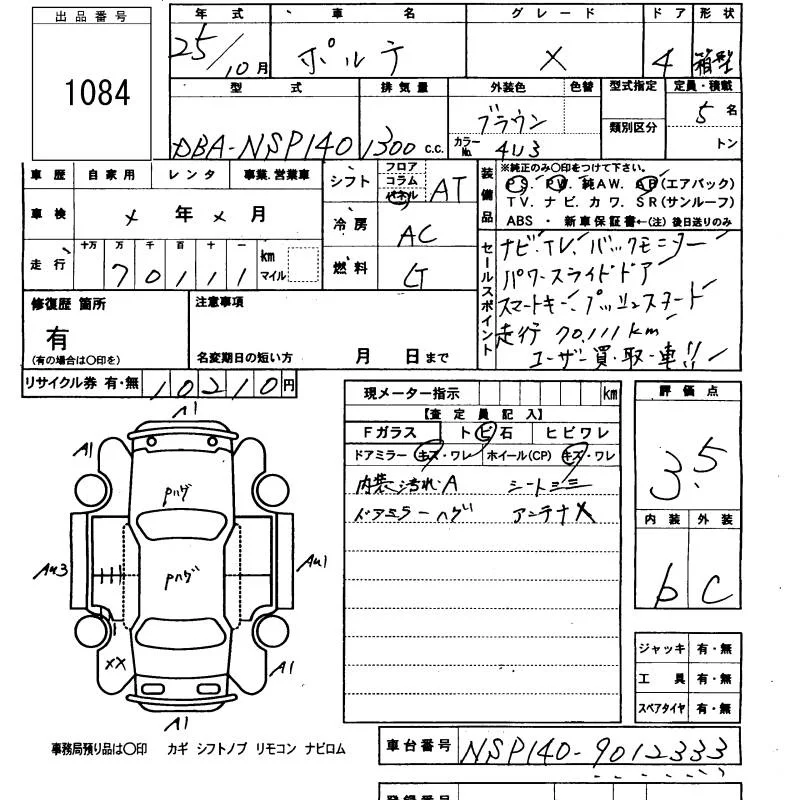 出品番号
1084
年式 車名 グレード ドア 形状
25/10月 ポルテ X 4 箱型
型式 排気量 外装色 色替 型式指定 定員・積載
DBA-NSP140 1300 c.c. ブラウン カラーNo. 4U3 類別区分 5名
トン
車歴 自家用 レンタ 事業.営業車
車検 メ年メ月
走行 十万 万 千 百 十 一
70111 km マイル
シフト フロア コラム パネル AT
冷房 AC
燃料 LT
装備品 ※純正のみ〇印をつけて下さい。
PS. PW. 純AW. AB(エアバック)
TV. ナビ. カワ. SR(サンルーフ)
ABS ・ 新車保証書←(注) 後日送りのみ
セールスポイント
ナビ.TV.バックモニター
パワースライドドア
スマートキー.プッシュスタート
走行 70,111km
ユーザー買・取・車!!
修復歴 箇所
有
(有の場合は〇印を)
注意事項
名変期日の短い方 月 日まで
リサイクル券 有・無 10210円
現メーター指示 km
【査定員記入】
Fガラス トビ石 ヒビワレ
ドアミラー キズ・ワレ ホイール(CP) キズ・ワレ
内装汚れA シートミミ
ドアミラーハゲ アンテナX
評価点
3.5
内装 外装
b C
A1
A1
Pハゲ
Au3
Pハゲ
Au1
XX
A1
A1
ジャッキ 有・無
工具 有・無
スペアタイヤ 有・無
事務局預り品は〇印 カギ シフトノブ リモコン ナビロム
車台番号 NSP140-9012333
登録番号